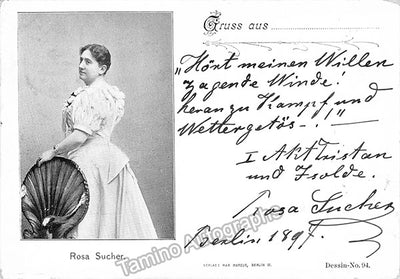 Gruss aus
„Hört meinen Willen
zagende Winde!
heran zu Kampf und
Wettergetös-.!"—
I Akt Tristan
und Isolde.
Rosa Sucher
Berlin 1897.
Rosa Sucher.
BERLIN
Dessin-No. 94.
Tamino Autographs